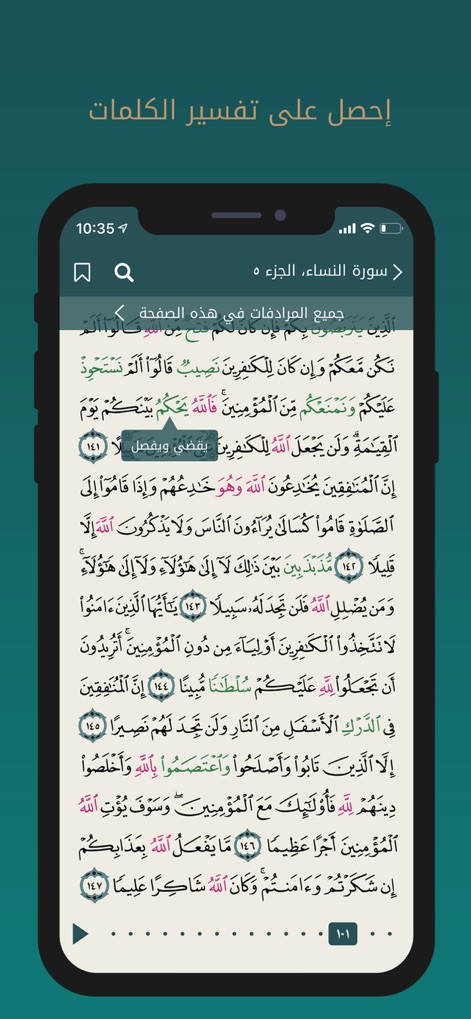 إحصل على تفسير الكلمات
10:35
سورة النساء، الجزء ٥
جميع المرادفات في هذه الصفحة
ٱلَّذِينَ يَتَرَبَّصُونَ بِكُمْ فَإِن كَانَ لَكُمْ فَتْحٌ مِّنَ ٱللَّهِ قَالُوٓاْ أَلَمْ
نَكُن مَّعَكُمْ وَإِن كَانَ لِلْكَٰفِرِينَ نَصِيبٌ قَالُوٓاْ أَلَمْ نَسْتَحْوِذْ
عَلَيْكُمْ وَنَمْنَعْكُم مِّنَ ٱلْمُؤْمِنِينَۚ فَٱللَّهُ يَحْكُمُ بَيْنَكُمْ يَوْمَ
ٱلْقِيَٰمَةِۗ وَلَن يَجْعَلَ ٱللَّهُ لِلْكَٰفِرِينَ ١٤١
يقضي ويفصل
إِنَّ ٱلْمُنَٰفِقِينَ يُخَٰدِعُونَ ٱللَّهَ وَهُوَ خَٰدِعُهُمْ وَإِذَا قَامُوٓاْ إِلَى
ٱلصَّلَوٰةِ قَامُواْ كُسَالَىٰ يُرَآءُونَ ٱلنَّاسَ وَلَا يَذْكُرُونَ ٱللَّهَ إِلَّا
قَلِيلًا ١٤٢ مُّذَبْذَبِينَ بَيْنَ ذَٰلِكَ لَآ إِلَىٰ هَٰٓؤُلَآءِ وَلَآ إِلَىٰ هَٰٓؤُلَآءِۚ
وَمَن يُضْلِلِ ٱللَّهُ فَلَن تَجِدَ لَهُۥ سَبِيلًا ١٤٣ يَٰٓأَيُّهَا ٱلَّذِينَ ءَامَنُواْ
لَا تَتَّخِذُواْ ٱلْكَٰفِرِينَ أَوْلِيَآءَ مِن دُونِ ٱلْمُؤْمِنِينَۚ أَتُرِيدُونَ
أَن تَجْعَلُواْ لِلَّهِ عَلَيْكُمْ سُلْطَٰنًا مُّبِينًا ١٤٤ إِنَّ ٱلْمُنَٰفِقِينَ
فِي ٱلدَّرْكِ ٱلْأَسْفَلِ مِنَ ٱلنَّارِ وَلَن تَجِدَ لَهُمْ نَصِيرًا ١٤٥
إِلَّا ٱلَّذِينَ تَابُواْ وَأَصْلَحُواْ وَٱعْتَصَمُواْ بِٱللَّهِ وَأَخْلَصُواْ
دِينَهُمْ لِلَّهِ فَأُوْلَٰٓئِكَ مَعَ ٱلْمُؤْمِنِينَۖ وَسَوْفَ يُؤْتِ ٱللَّهُ
ٱلْمُؤْمِنِينَ أَجْرًا عَظِيمًا ١٤٦ مَّا يَفْعَلُ ٱللَّهُ بِعَذَابِكُمْ
إِن شَكَرْتُمْ وَءَامَنتُمْۚ وَكَانَ ٱللَّهُ شَاكِرًا عَلِيمًا ١٤٧
١٠١